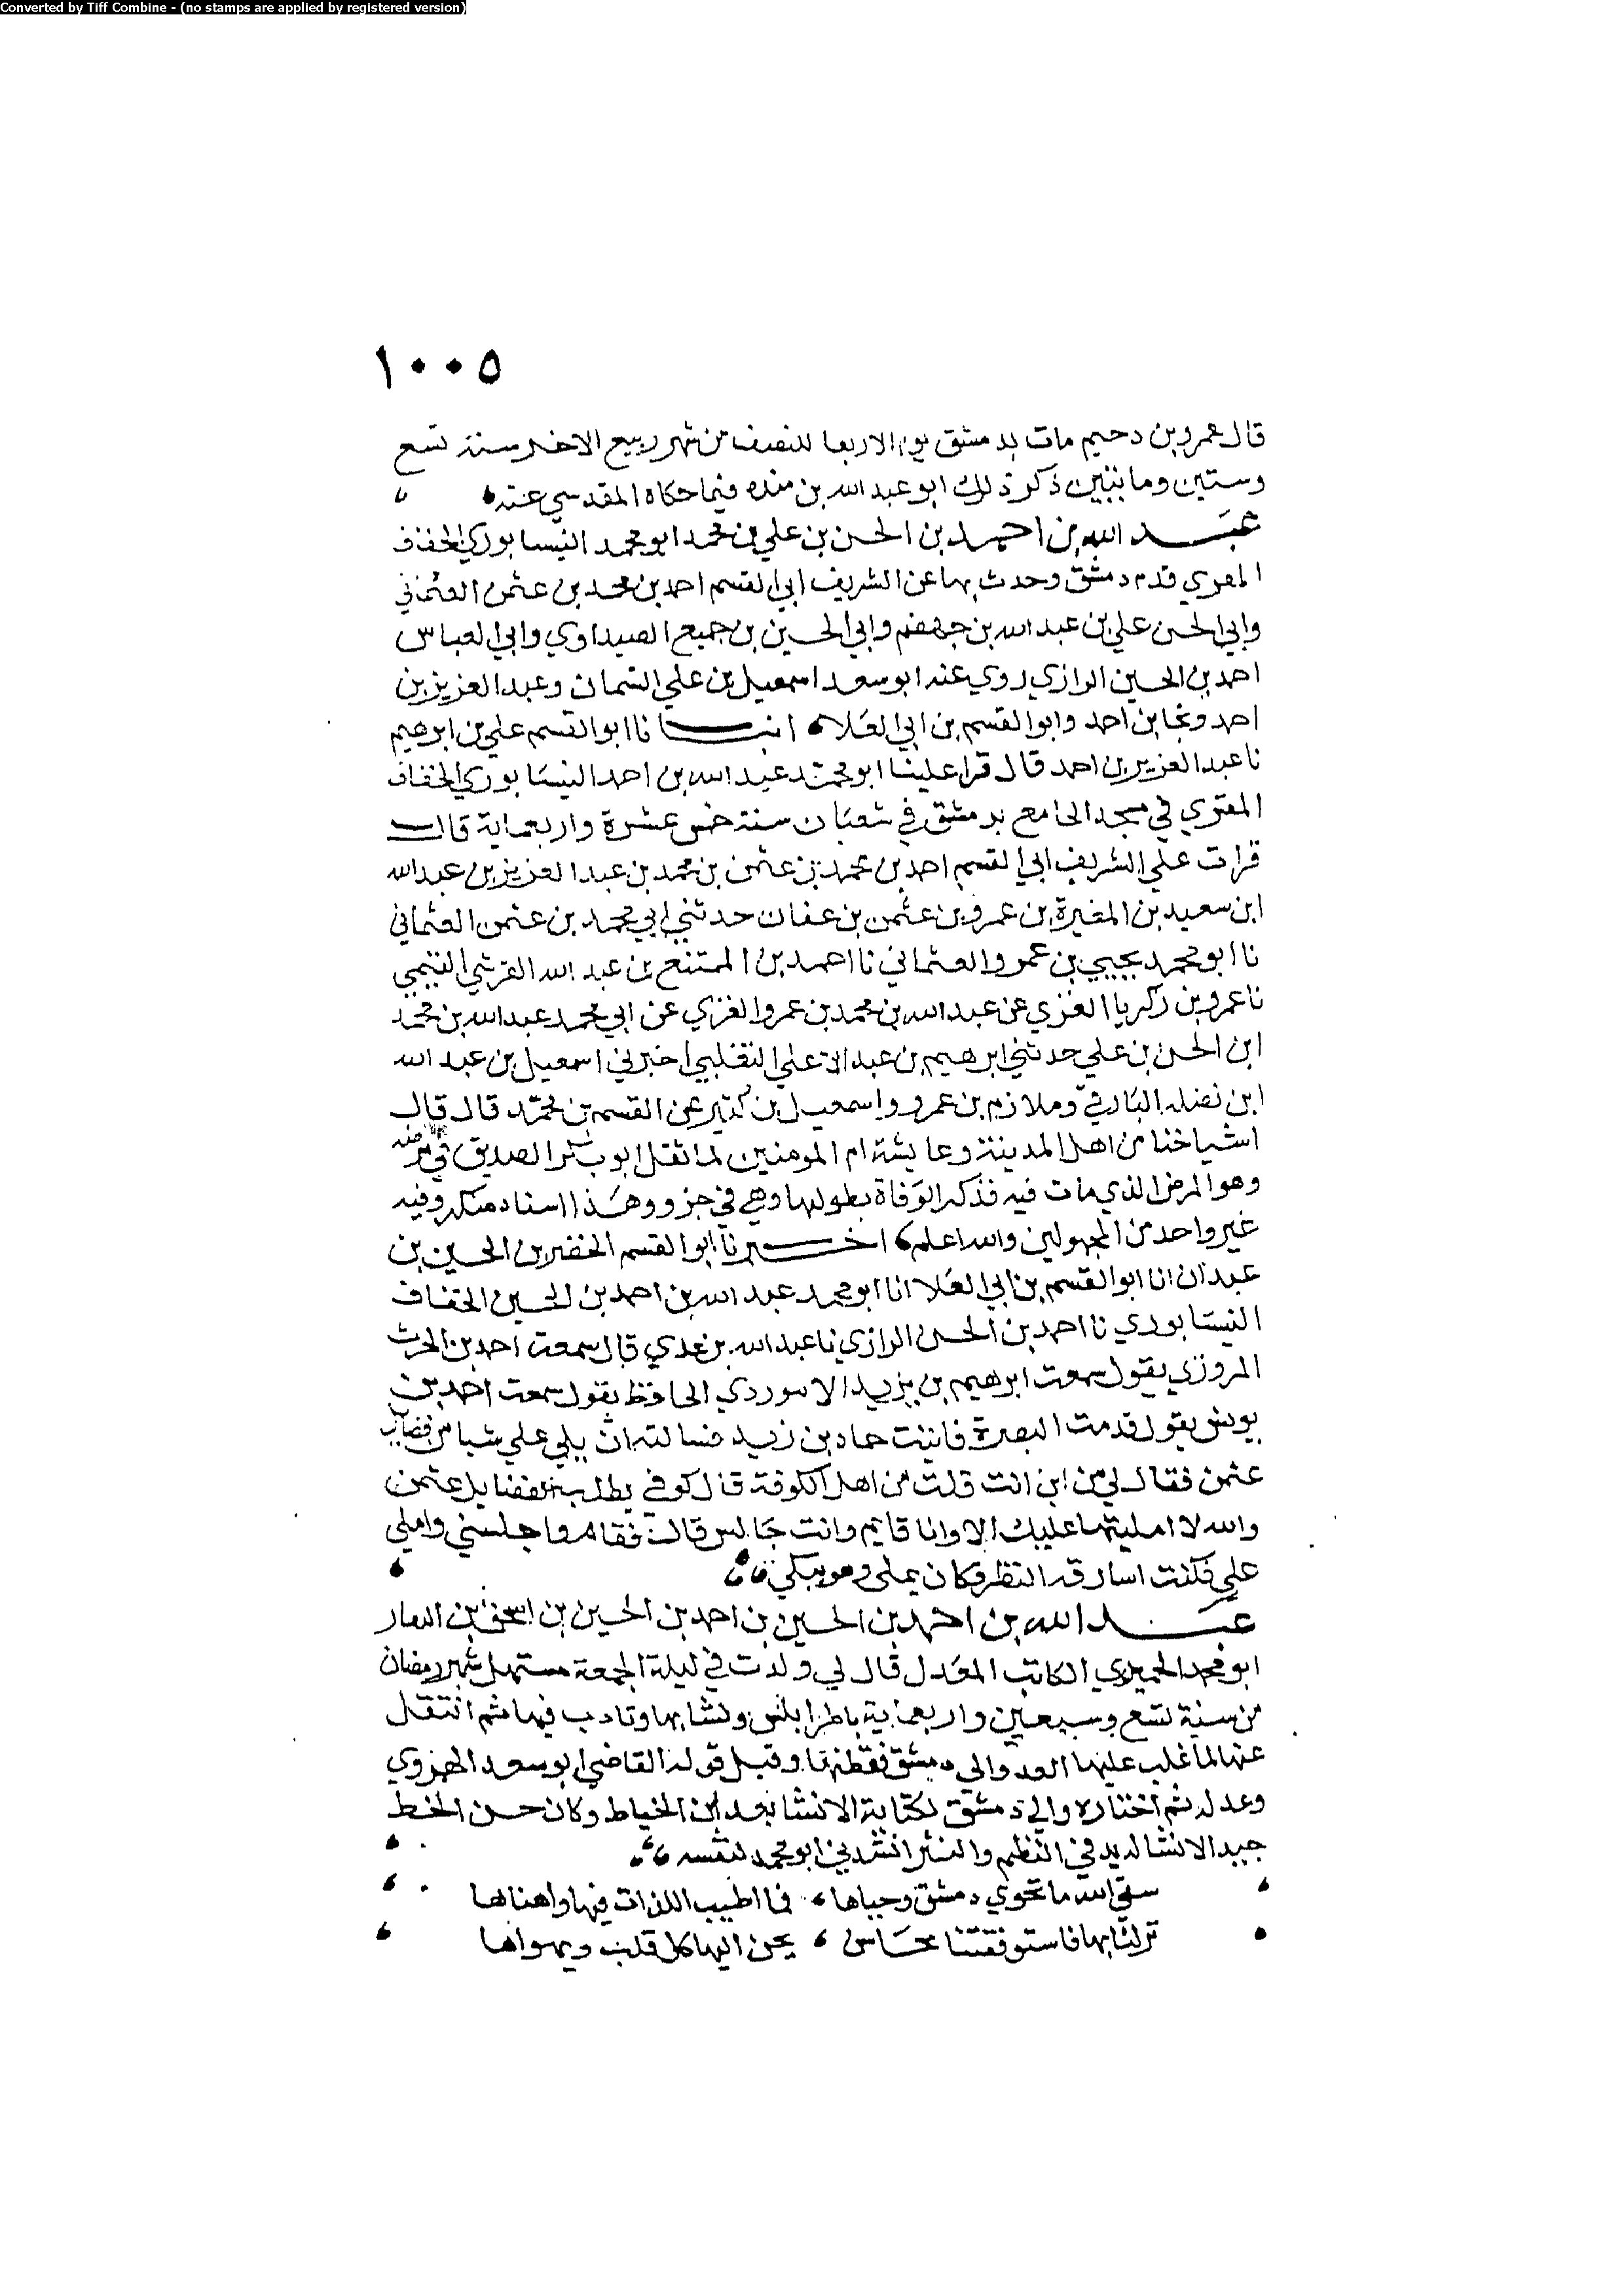 Converted by Tiff Combine - (no stamps are applied by registered version)
١٠٠٥
قال عمرو بن دحيم مات بدمشق يوم الاربعا للنصف من شهر ربيع الاخر سنة تسع
وستين ومايتين ذكر ذلك ابو عبد الله بن منده فيما حكاه المقدسي عنه
عبد الله بن احمد بن الحسن بن علي بن محمد ابو محمد النيسابوري الخفاف
المقري قدم دمشق وحدث بها عن الشريف ابي القسم احمد بن محمد بن عثمن العثماني
وابي الحسن علي بن عبد الله بن جهضم وابي الحسين بن جميع الصيداوي وابي العباس
احمد بن الحسين الرازي روي عنه ابو سعد اسمعيل بن علي السمان وعبد العزيز بن
احمد ونجا بن احمد وابو القسم بن ابي العلا انبانا ابو القسم علي بن ابرهيم
نا عبد العزيز بن احمد قال قرا علينا ابو محمد عبد الله بن احمد النيسابوري الخفاف
المقري في مسجد الجامع بدمشق في شعبان سنة خمس عشرة واربعماية قال
قرات علي الشريف ابي القسم احمد بن محمد بن عثمن بن محمد بن عبد العزيز بن عبد الله
ابن سعيد بن المغيرة بن عمرو بن عثمن بن عفان حدثني ابي محمد بن عثمن العثماني
نا ابو محمد يحيي بن عمرو العثماني نا احمد بن الممتنع بن عبد الله القرشي التيمي
نا عمرو بن زكريا الغزي عن عبد الله بن محمد بن عمرو الغزي عن ابي محمد عبد الله بن محمد
ابن الحسن بن علي حدثني ابرهيم بن عبد الاعلي التغلبي اخبرني اسمعيل بن عبد الله
ابن نضله وملازم بن عمرو واسمعيل بن كثير عن القسم بن محمد قال قال
اشياخنا من اهل المدينة وعايشة ام المومنين لما ثقل ابو بكر الصديق في مرضه
وهو المرض الذي مات فيه فذكر الوفاة بطولها وهي في جزو وهذا اسناد منكر وفيه
غير واحد من المجهولين والله اعلم اخبرنا ابو القسم الخضر بن الحسين بن
عبدان انا ابو القسم بن ابي العلا انا ابو محمد عبد الله بن احمد بن الحسين الخفاف
النيسابوري نا احمد بن الحسن الرازي نا عبد الله بن عدي قال سمعت احمد بن الحرث
المروزي يقول سمعت ابرهيم بن يزيد الحافظ يقول سمعت احمد بن
يونس يقول قدمت البصرة فاتيت حماد بن زيد فسالته ان يملي علي شيا من فضايل
عثمن فقال لي من اين انت قلت من اهل الكوفة قال كوفي يطلب فضايل عثمن
والله لا امليتها عليك الا وانا قايم وانت جالس قال فقام واجلسني واملي
علي فكنت اسارقه النظر وكان يملي وهو يبكي
عبد الله بن احمد بن الحسين بن احمد بن الحسين بن اسحق بن
ابو محمد الحميري الكاتب المعدل قال لي ولدت في ليلة الجمعة مستهل شهر رمضان
من سنة تسع وسبعين واربعماية باطرابلس ونشا بها وتادب فيها ثم انتقل
عنها لما غلب عليها العدو الي دمشق فقطنها وقبل قوله القاضي ابو سعد الهروي
وعدله ثم اختاره والي دمشق لكتابة الانشا بعد ابن الخياط وكان حسن الخط
جيد الانشا له يد في النظم والنثر انشدني ابو محمد لنفسه
سقي الله ما تحوي دمشق وحياها فما اطيب اللذات فيها واهناها
نزلنا بها فاستوقفتنا محاسن يحن اليها كل قلب ويهواها